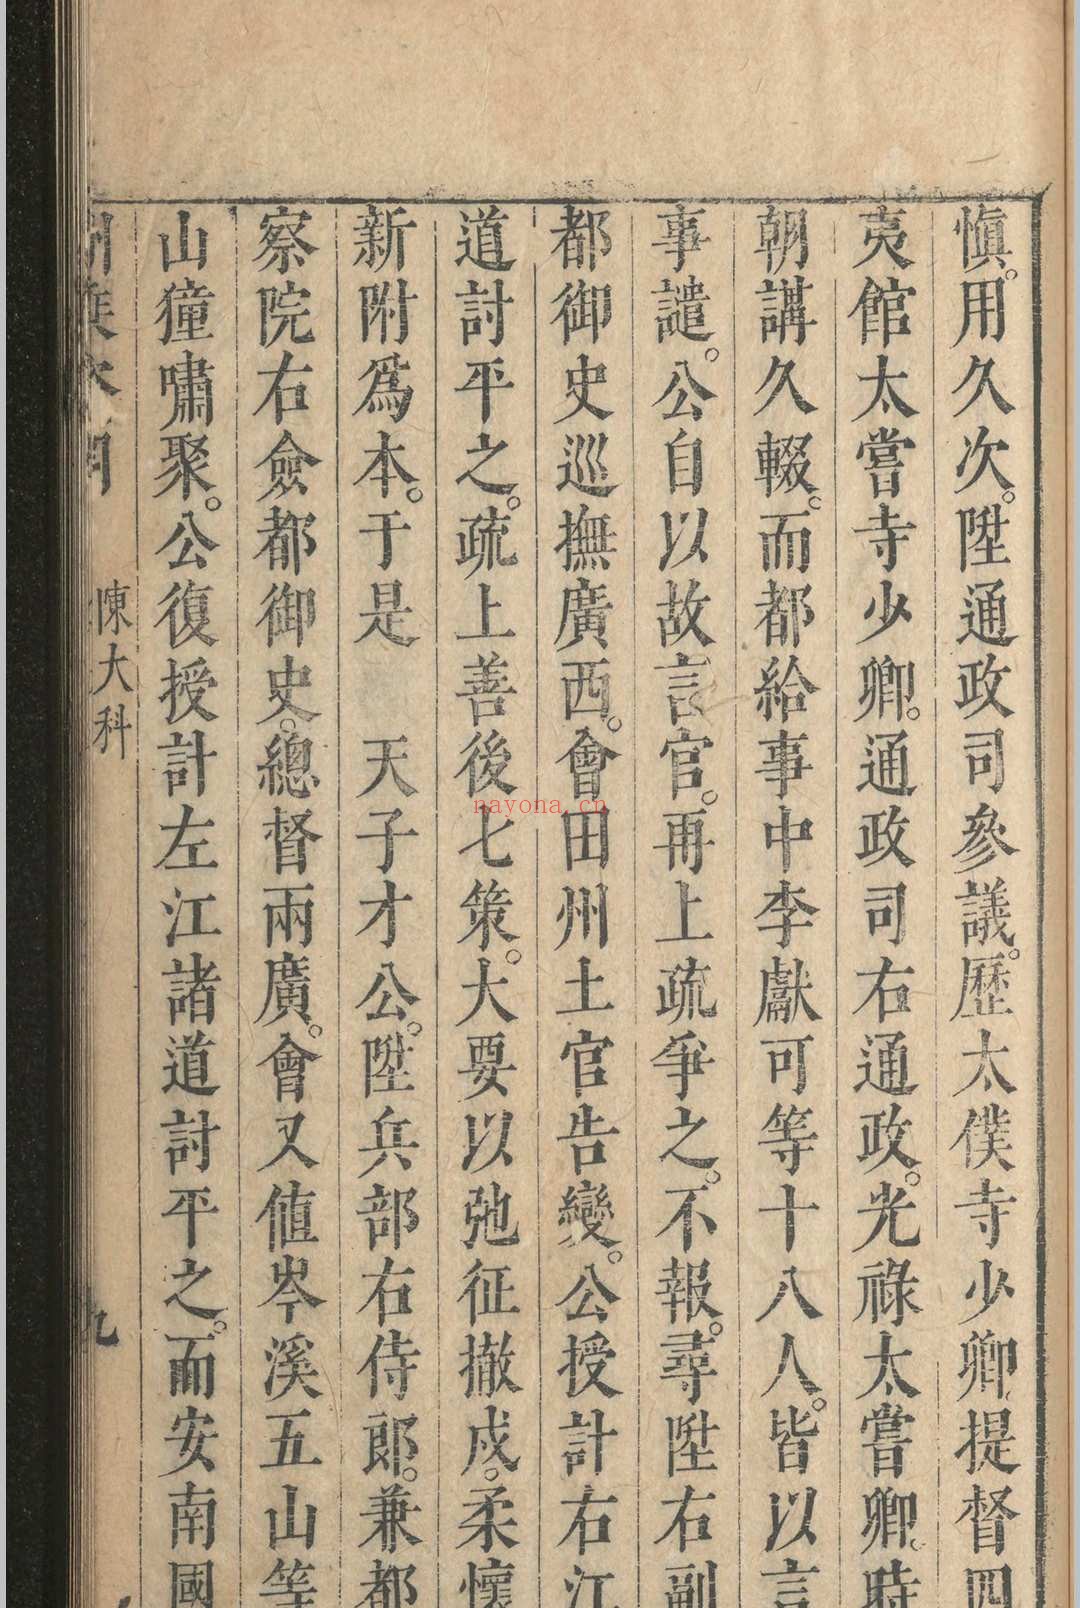 慎用久次。陞通政司參議。歷太僕寺少卿提督四
夷館太嘗寺少卿。通政司右通政。光祿太嘗卿。時
朝講久輟。而都給事中李獻可等十八人。皆以言
事譴。公自以故言官。再上疏爭之。不報。尋陞右副
都御史巡撫廣西。會田州土官告變。公授計右江
道討平之。疏上善後七策。大要以弛征撤戍。柔懷
新附爲本。于是　天子才公。陞兵部右侍郎。兼都
察院右僉都御史。總督兩廣。會又值岑溪五山等
山獞嘯聚。公復授計左江諸道討平之。而安南國
陳大科
九
nayona.cn